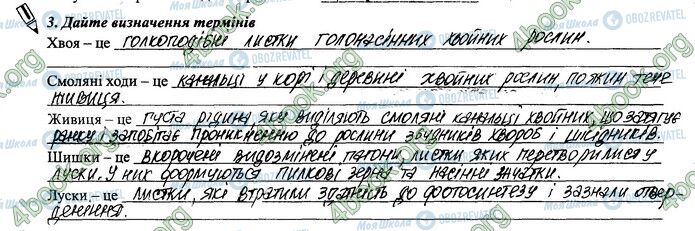 3. Дайте визначення термінів
Хвоя – це голкоподібні листки голонасінних хвойних рослин.
Смоляні ходи – це канальці у корі і деревині хвойних рослин, по яким тече
живиця.
Живиця – це густа рідина, яку виділяють смоляні канальці хвойних, що затягує
ранку і запобігає проникненню до рослини збудників хвороб і шкідників.
Шишки – це вкорочені видозмінені пагони, листки яких перетворилися у
луски. У них формуються пилкові зерна та насінні зачатки.
Луски – це листки, які втратили здатність до фотосинтезу і зазнали отвер-
дення.